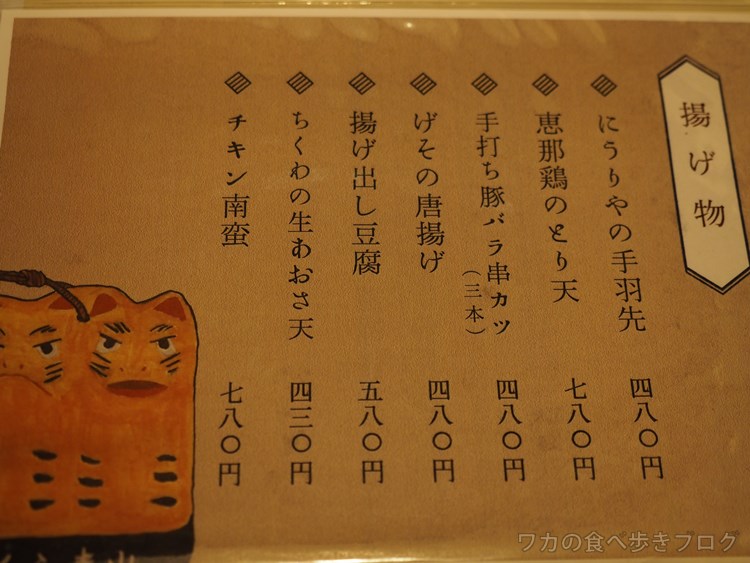 揚げ物
にうりやの手羽先 四八〇円
恵那鶏のとり天 七八〇円
手打ち豚バラ串カツ（三本） 四八〇円
げその唐揚げ 四八〇円
揚げ出し豆腐 五八〇円
ちくわの生あおさ天 四三〇円
チキン南蛮 七八〇円
ワカの食べ歩きブログ